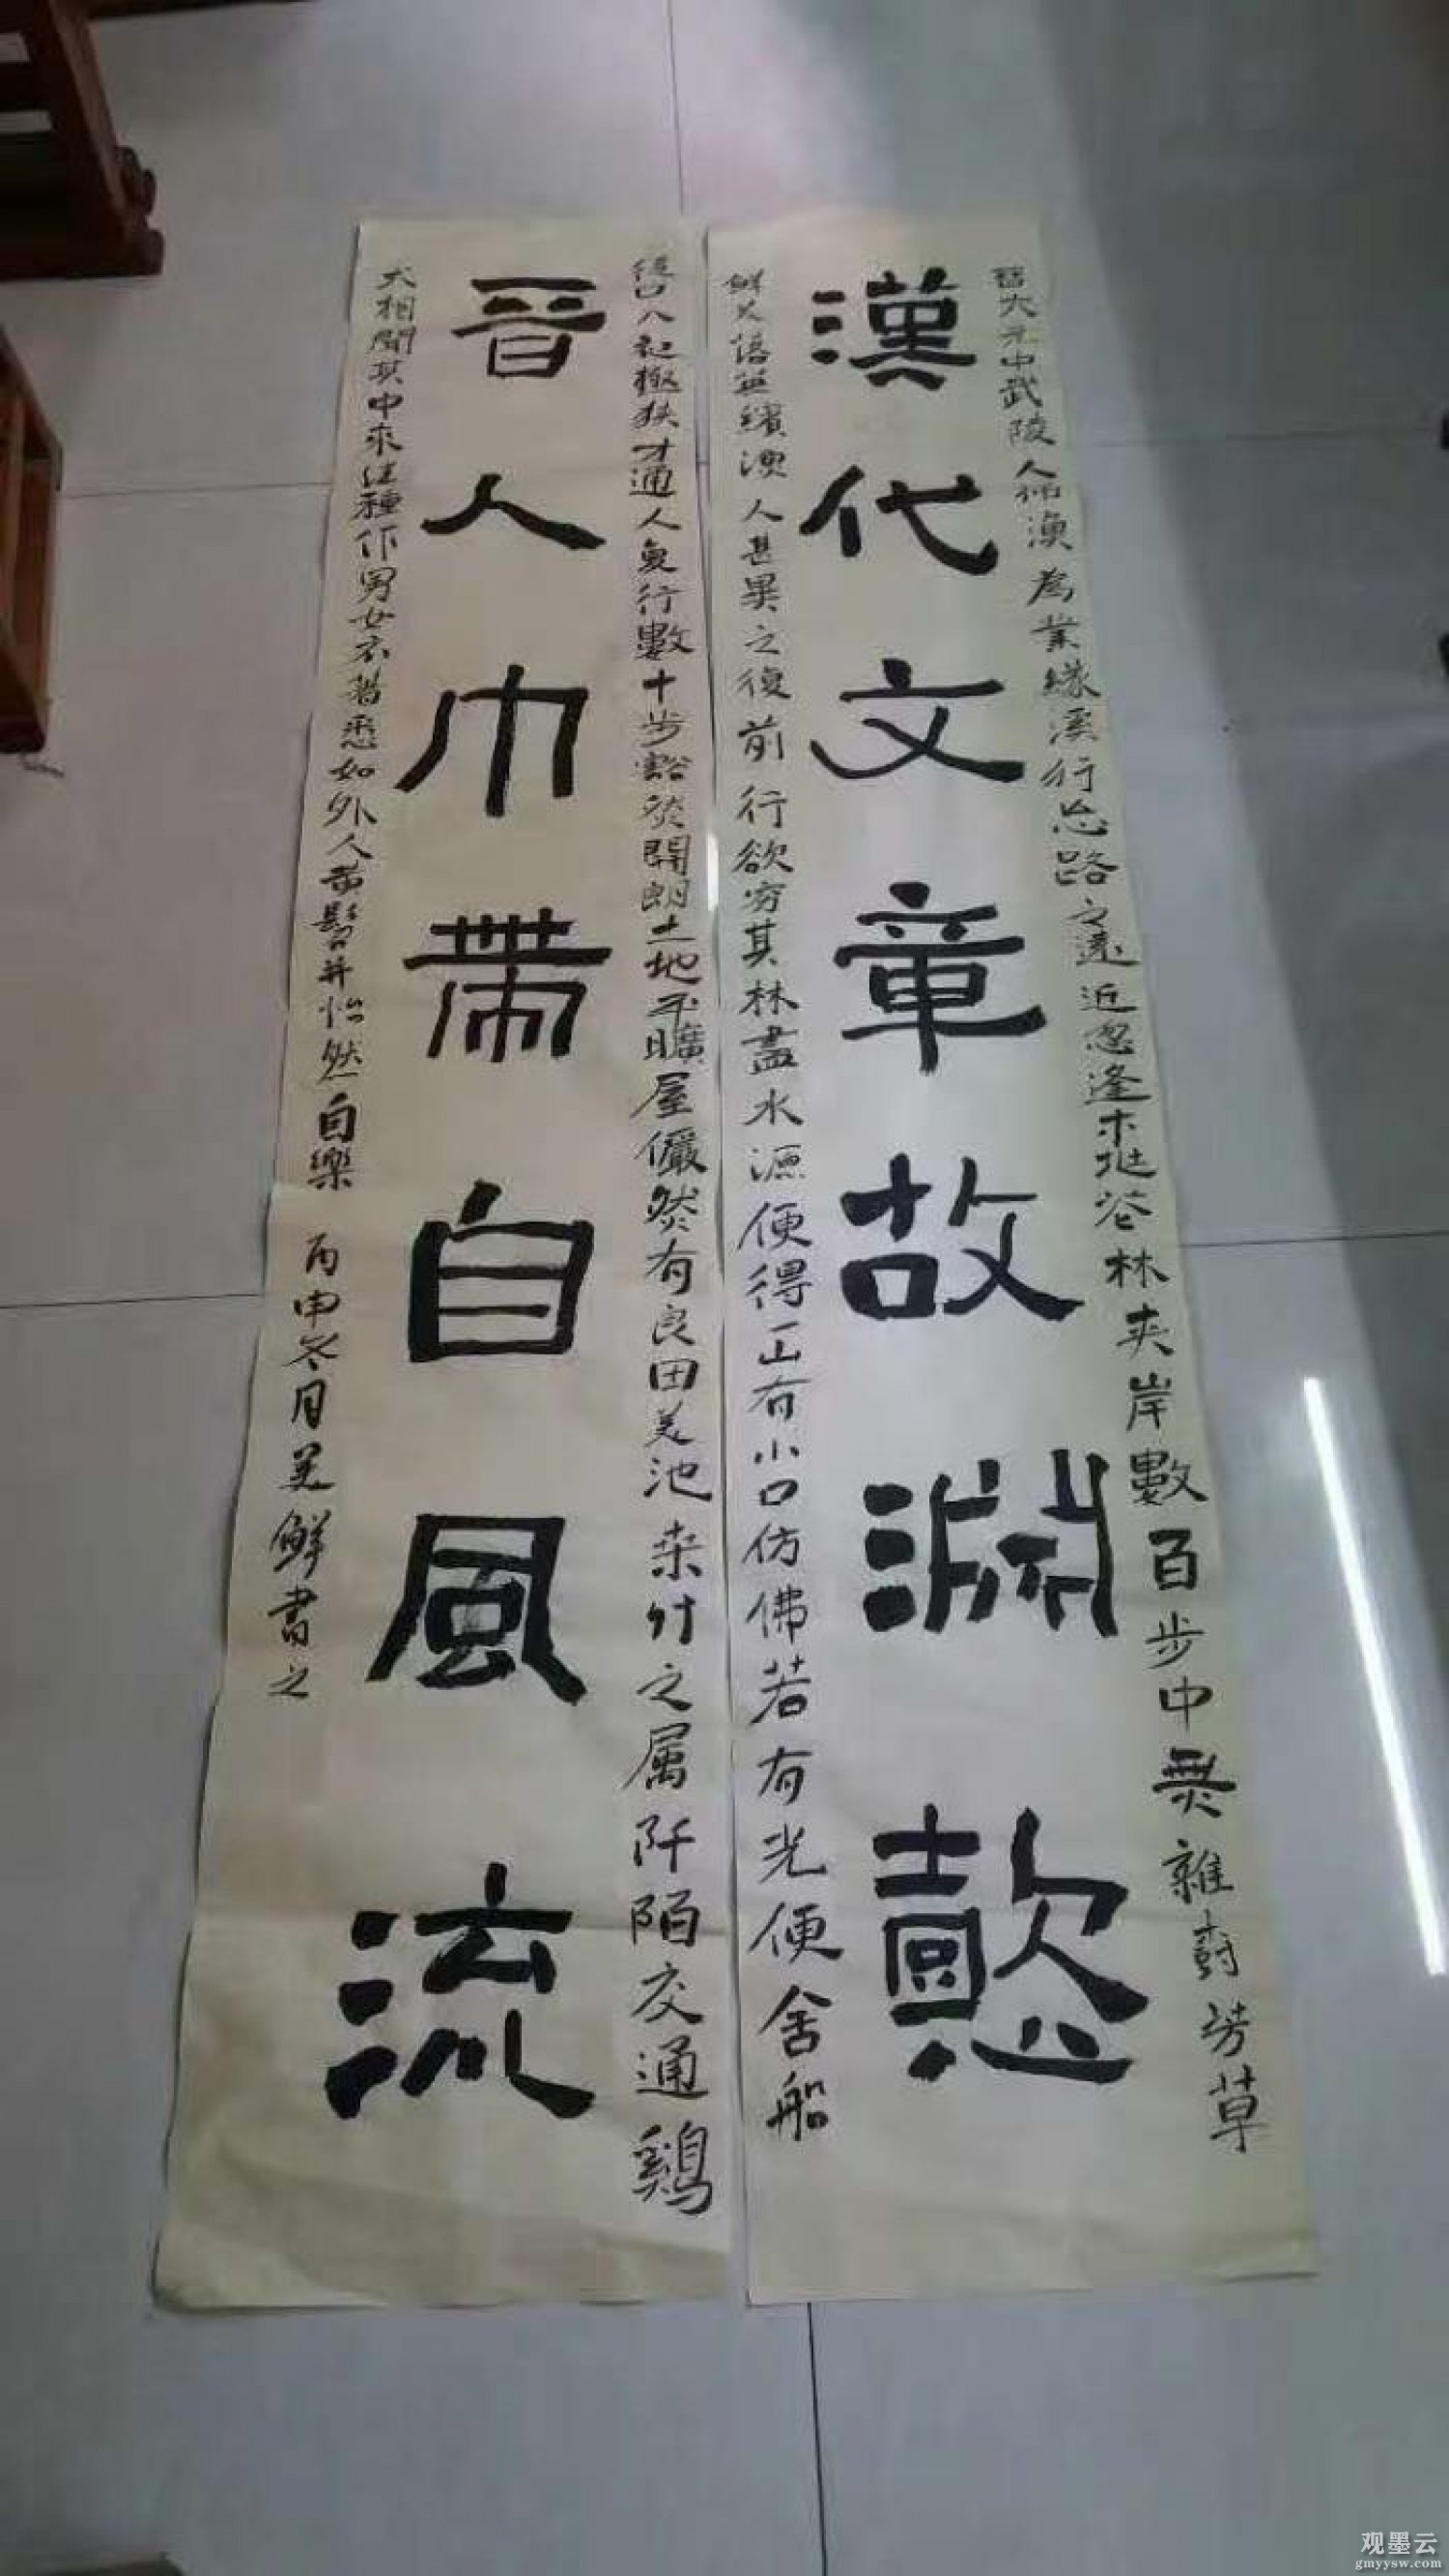 晉太元中武陵人捕漁為業緣溪行忘路之遠近忽逢木桃花林夾岸數百步中無雜樹芳草
漢代文章故淵懿
鮮美落英繽漁人甚異之復前行欲穷其林盡水源便得一山有小口仿佛若有光便舍船
從口入初極狹才通人复行數十步豁然開朗土地平曠屋儼然有良田美池桑竹之属阡陌交通鷄
晉人巾帶自風流
犬相聞其中來往種作男女衣着悉如外人黄髫并怡然自樂 丙申冬月美鮮書之
观墨云
gmyysw.com